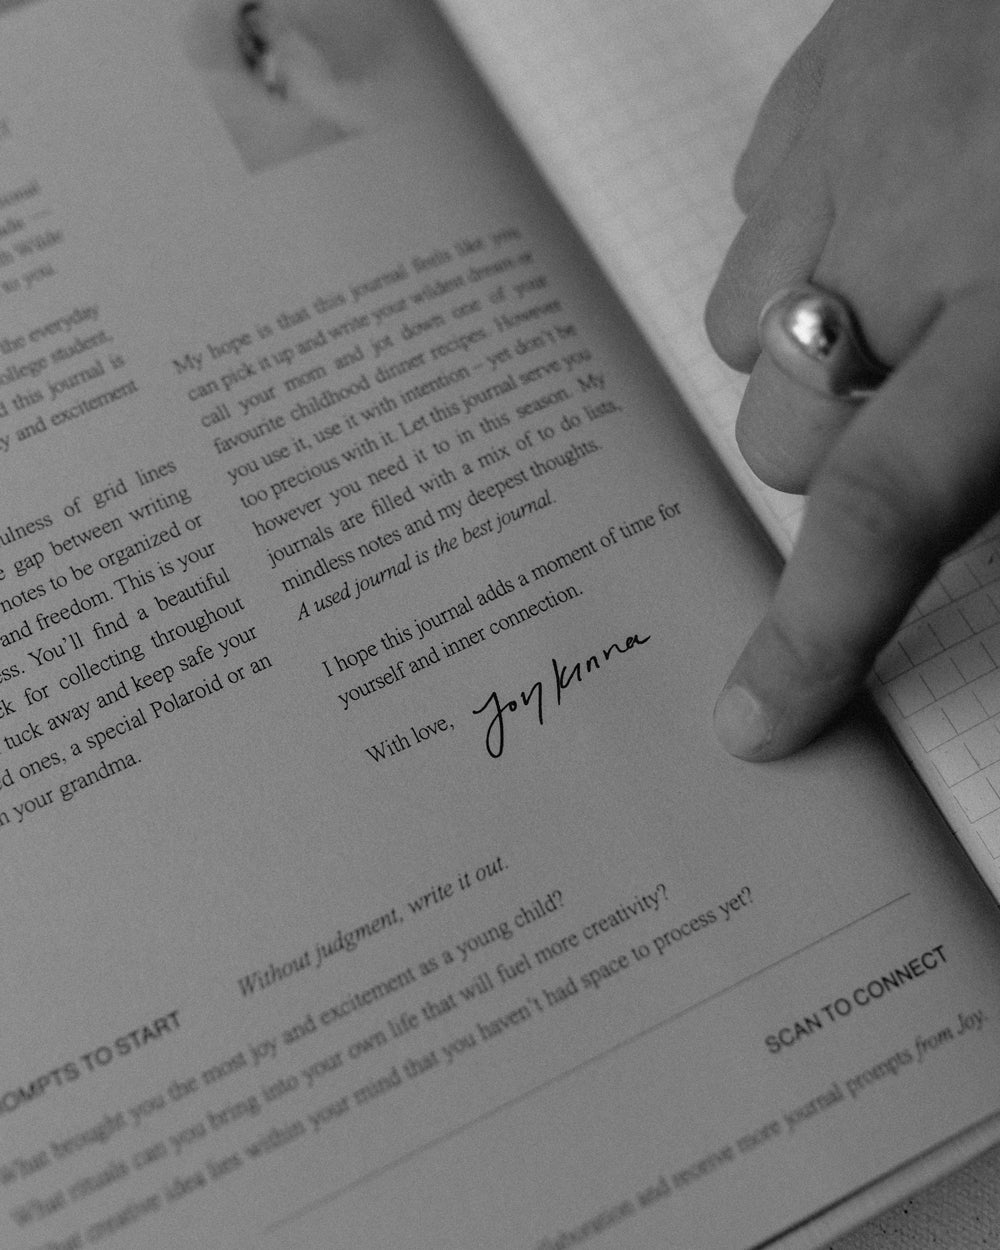 to you.
the everyday
ollege student.
d this journal is
y and excitement
ulness of grid lines
e gap between writing
notes to be organized or
and freedom. This is your
ess. You'll find a beautiful
ck for collecting throughout
tuck away and keep safe your
ed ones, a special Polaroid or an
n your grandma.
My hope is that this journal feels like you
can pick it up and write your wildest dream or
call your mom and jot down one of your
favourite childhood dinner recipes. However
you use it, use it with intention – yet don't be
too precious with it. Let this journal serve you
however you need it to in this season. My
journals are filled with a mix of to do lists,
mindless notes and my deepest thoughts.
A used journal is the best journal.
I hope this journal adds a moment of time for
yourself and inner connection.
With love, Joy Kinna
OMPTS TO START
Without judgment, write it out.
What brought you the most joy and excitement as a young child?
What rituals can you bring into your own life that will fuel more creativity?
What creative idea lies within your mind that you haven't had space to process yet?
SCAN TO CONNECT
and receive more journal prompts from Joy.